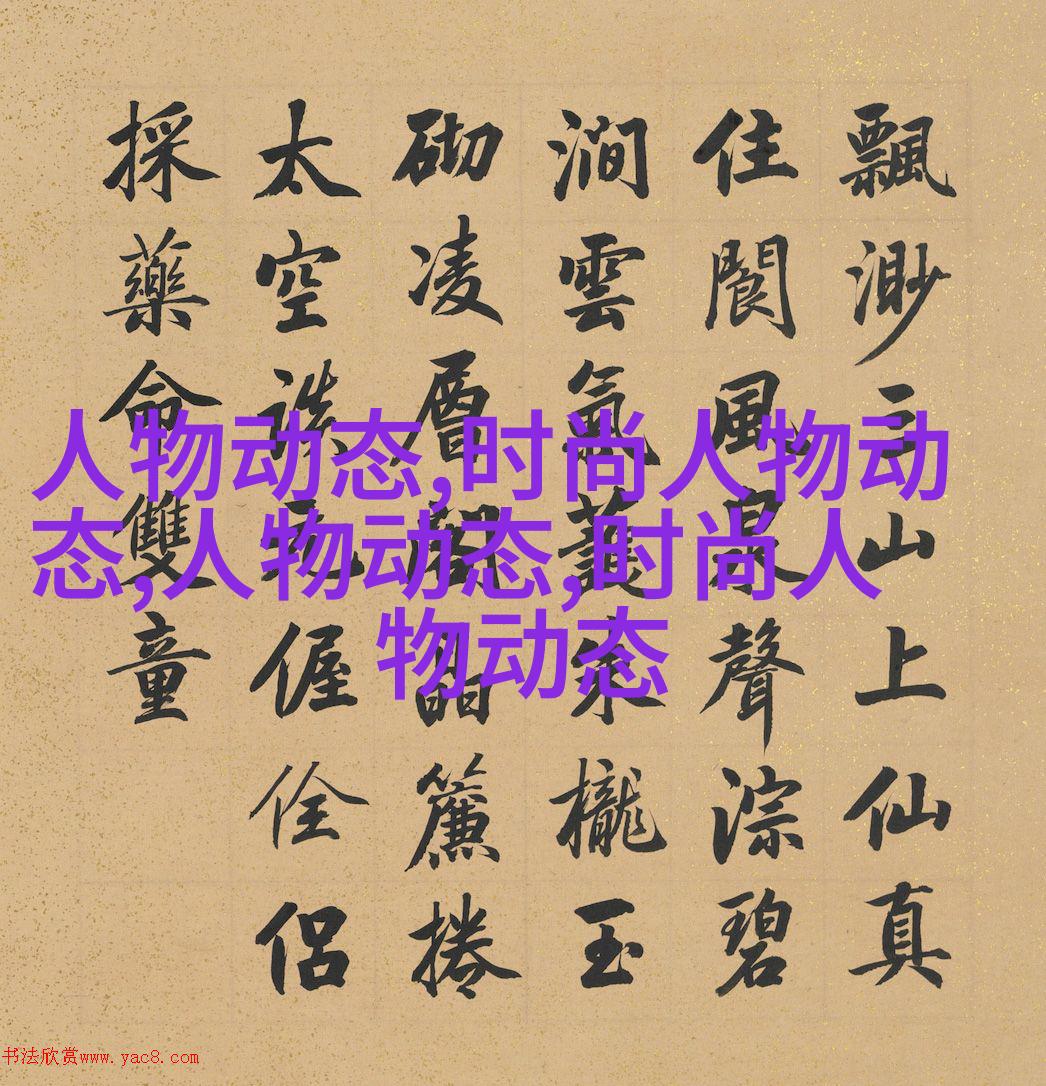 飄渺三山上仙真
住閬風泉聲淙碧
澗雲氣朱櫳玉
砌凌層閣晶簾捲
太空偓佺侶
採藥命雙童
人物动态,时尚人物动
态,人物动态,时尚人
物动态
书法欣赏www.yac8.com